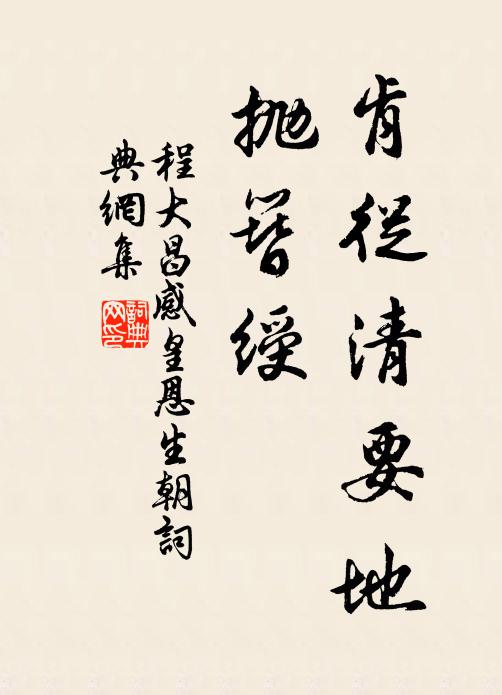 肯從清要地
拋簪綬
程大昌感皇恩生朝詞
典網集
詞典網印